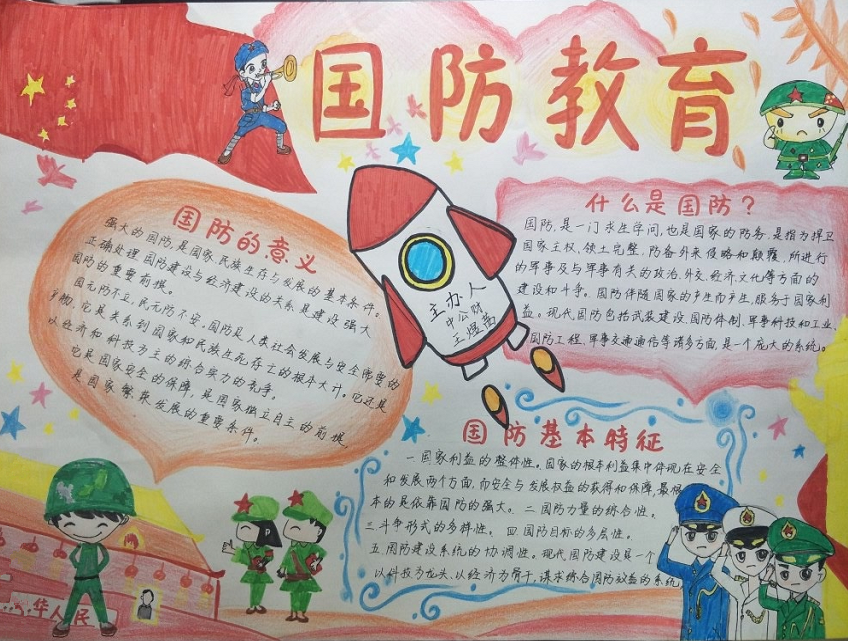 国防教育
国防的意义
强大的国防,是国家、民族生存与发展的基本条件。
正确处理国防建设与经济建设的关系是建设强大
国防的重要前提。
国无防不立,民无防不安。国防是人类社会发展与安全需要的
产物,它是关系到国家和民族生死存亡的根本大计。它还是
以经济和科技为主的综合实力的竞争。
它是国家安全的保障,是国家独立自主的前提,
是国家繁荣发展的重要条件。
主办人
中公财
王煜菡
什么是国防?
国防,是一门求生学问,也是国家的防务,是指为捍卫
国家主权、领土完整,防备外来侵略和颠覆,所进行
的军事及与军事有关的政治、外交、经济、文化等方面的
建设和斗争。国防伴随国家的产生而产生,服务于国家利
益。现代国防包括武装建设、国防体制、军事科技和工业、
国防工程、军事交通通信等诸多方面,是一个庞大的系统。
国防基本特征
一国家利益的整体性。国家的根本利益集中体现在安全
和发展两个方面,而安全与发展权益的获得和保障,最根
本的是依靠国防的强大。二国防力量的综合性。
三斗争形式的多样性。四国防目标的多层性。
五国防建设系统的协调性。现代国防建设是一个
以科技为龙头、以经济为骨干,谋求综合国防效益的系统
华人民